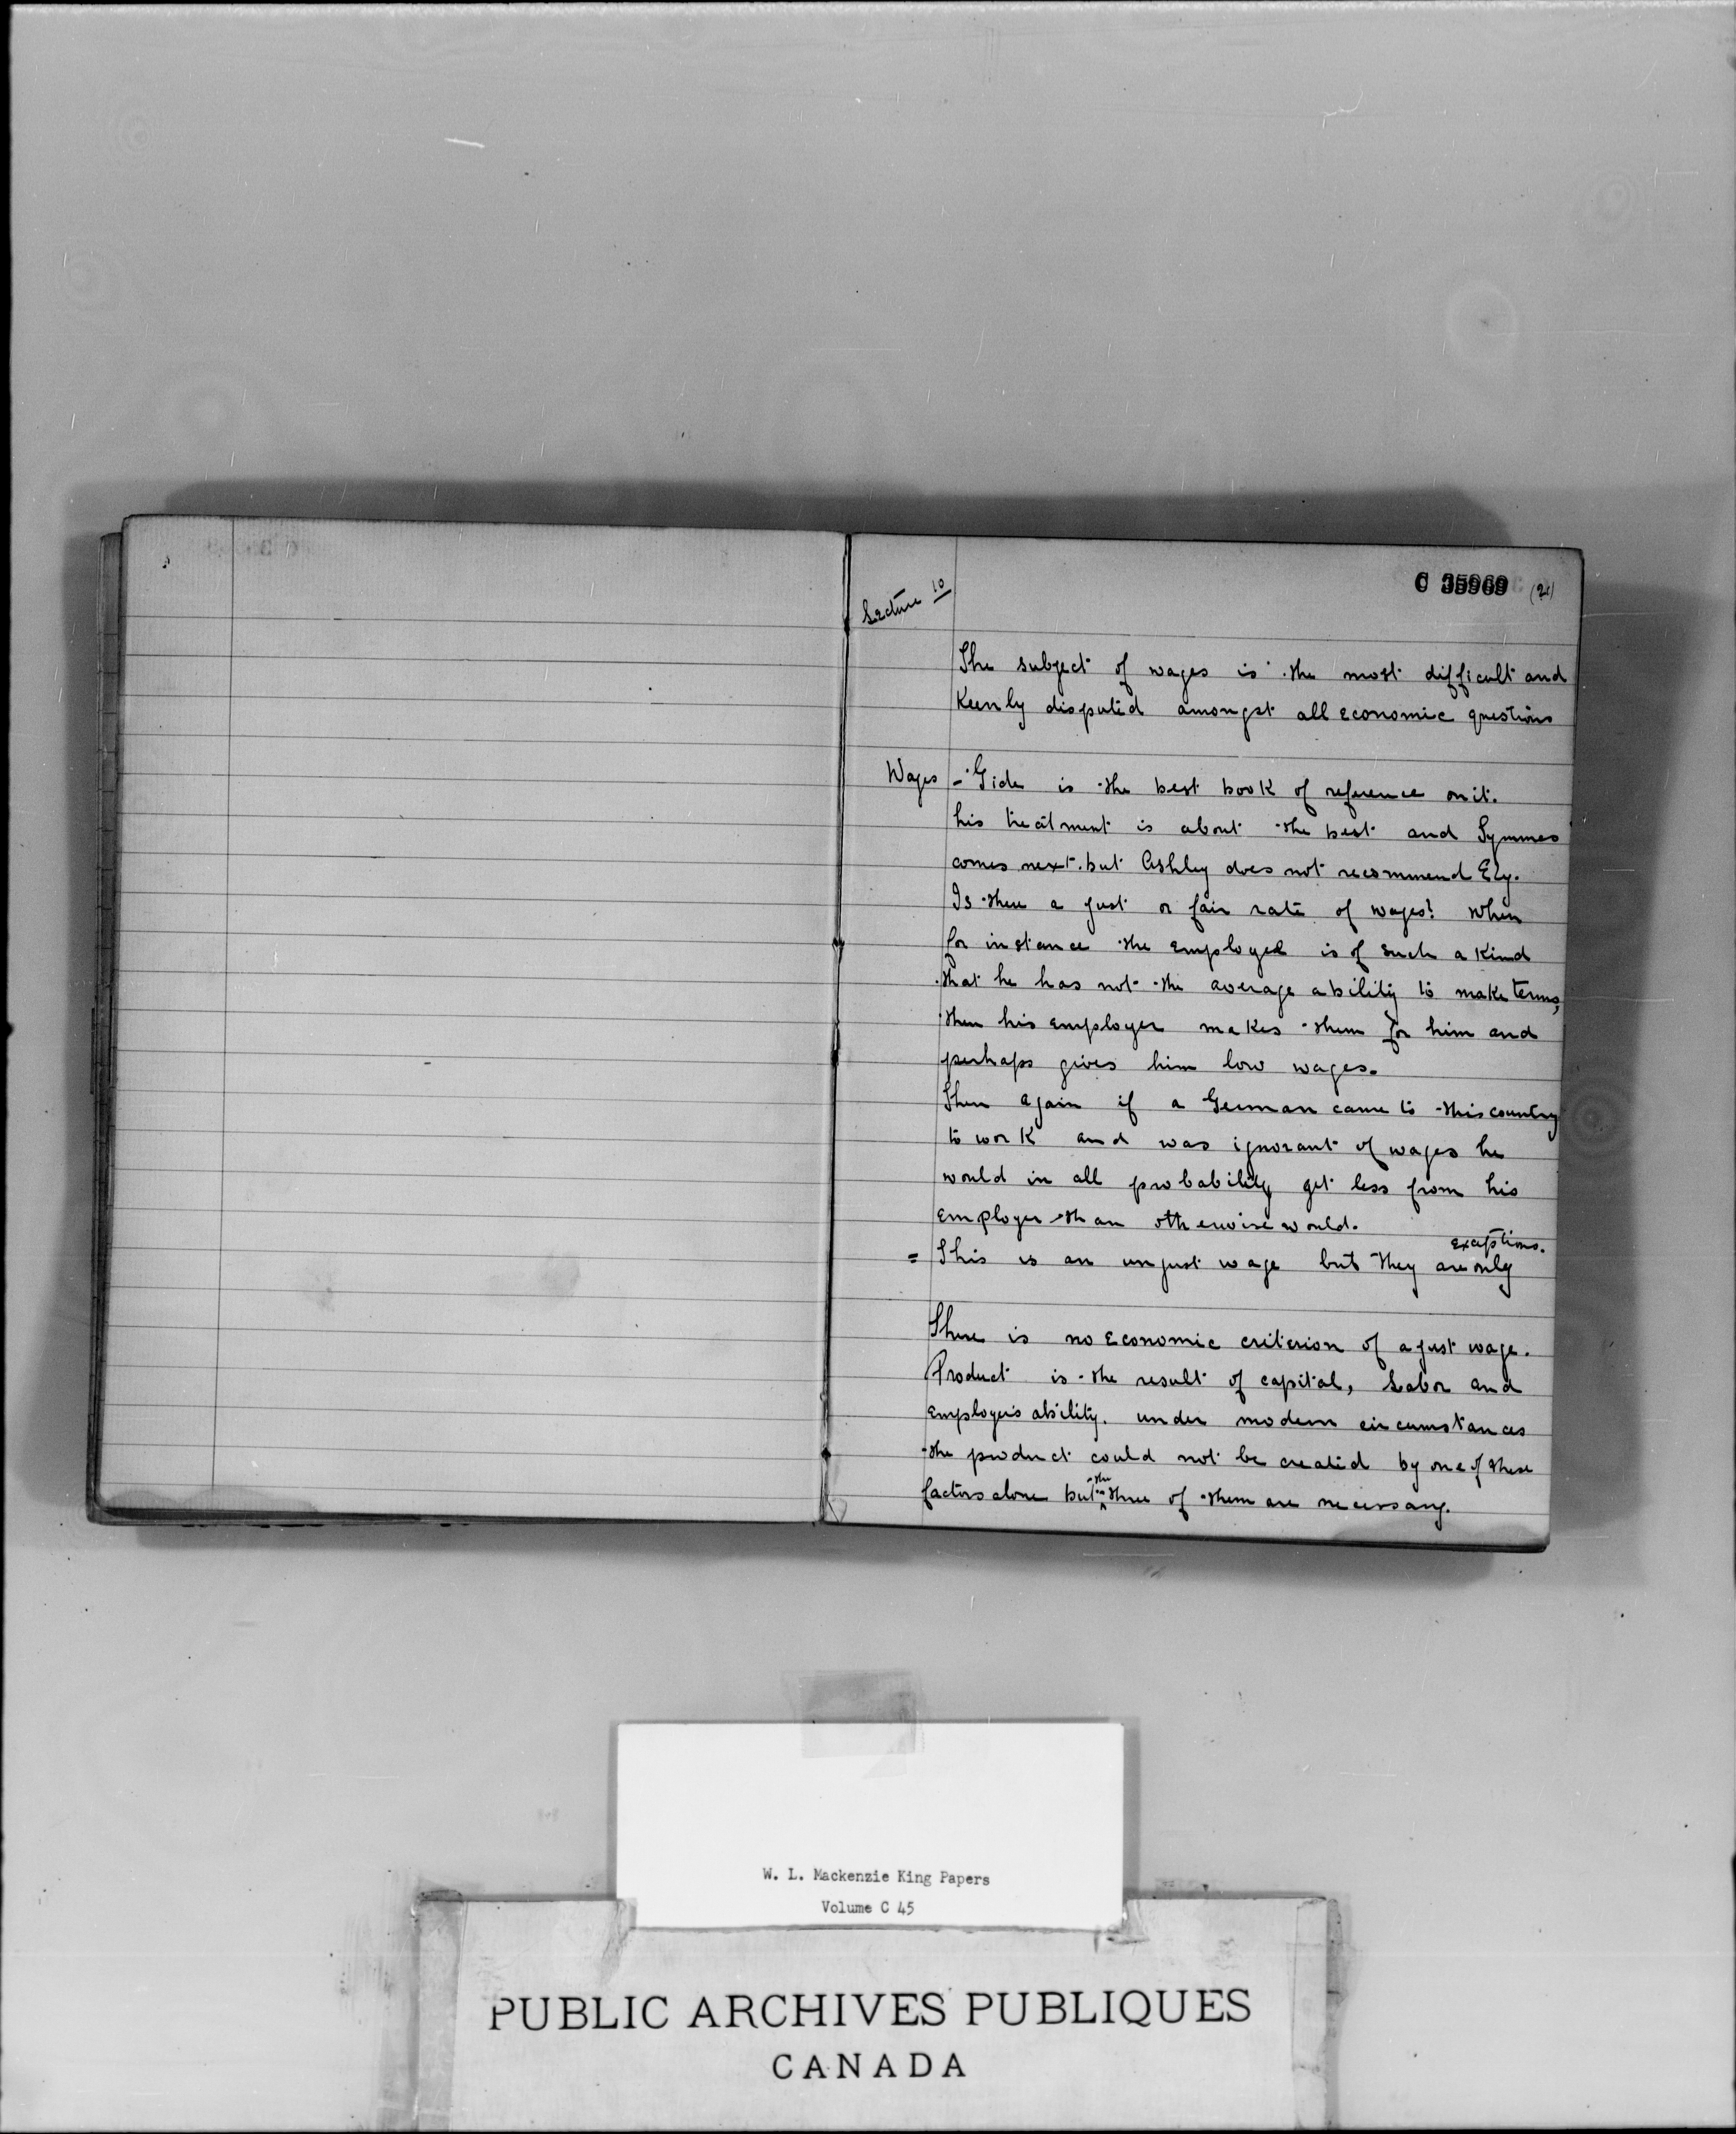 C 35969 (21)
Lecture 10
The subject of wages is the most difficult and
Keenly disputed amongst all economic questions
Wages - Gide is the best book of reference on it.
his treatment is about the best and Symmes
comes next. but Ashley does not recommend Ely.
Is there a just or fair rate of wages? When
for instance the employee is of such a kind
that he has not the average ability to make terms,
then his employer makes them for him and
perhaps gives him low wages.
Then again if a German came to this country
to work and was ignorant of wages he
would in all probability get less from his
employer than otherwise would.
= This is an unjust wage but they are only exceptions.
There is no economic criterion of a just wage.
Product is the result of capital, Labor and
employer's ability. under modern circumstances
the product could not be created by one of these
factors alone but the three of them are necessary.
W. L. Mackenzie King Papers
Volume C 45
PUBLIC ARCHIVES PUBLIQUES
CANADA